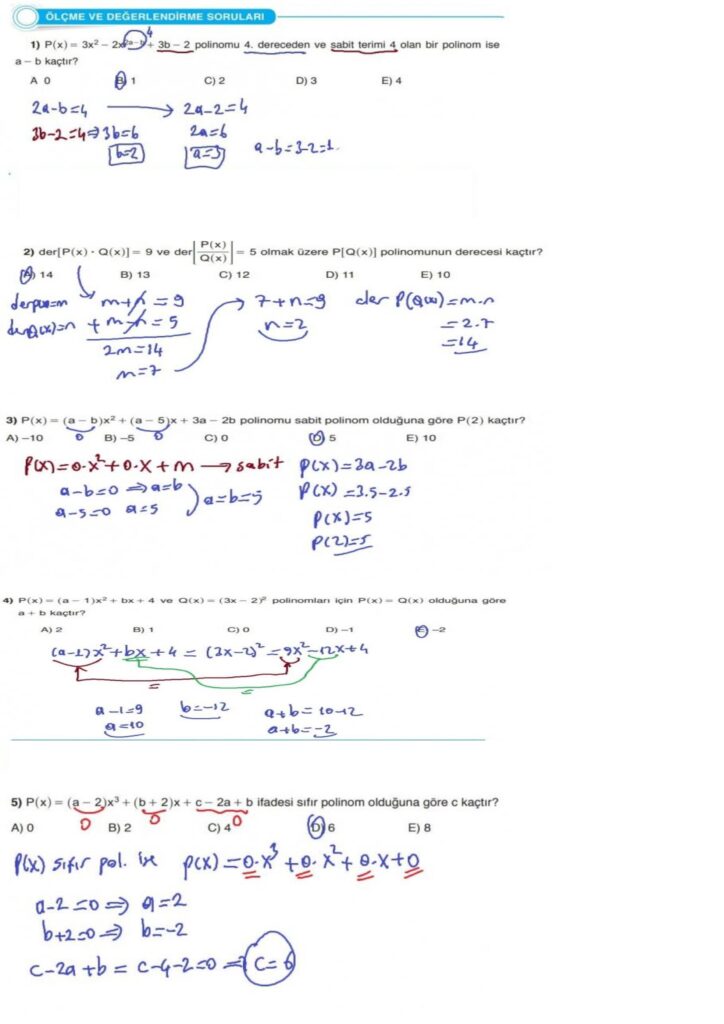 ÖLÇME VE DEĞERLENDİRME SORULARI
1) P(x) = 3x² – 2x²ᵃ⁻ᵇ + 3b – 2 polinomu 4. dereceden ve sabit terimi 4 olan bir polinom ise
4
a – b kaçtır?
A 0 B) 1 C) 2 D) 3 E) 4
2a-b=4 → 2a-2=4
3b-2=4⇒3b=6 2a=6
b=2 a=3 a-b=3-2=1.
2) der[P(x) · Q(x)] = 9 ve der[P(x)/Q(x)] = 5 olmak üzere P[Q(x)] polinomunun derecesi kaçtır?
A) 14 B) 13 C) 12 D) 11 E) 10
derp(x)=m m+n=9 7+n=9 der P(Q(x))=m.n
derQ(x)=n + m-n=5 n=2 =2.7
2m=14 =14
m=7
3) P(x) = (a – b)x² + (a – 5)x + 3a – 2b polinomu sabit polinom olduğuna göre P(2) kaçtır?
0 0
A) –10 B) –5 C) 0 D) 5 E) 10
P(x)=0.x²+0.x+m → sabit P(x)=3a-2b
a-b=0 ⇒a=b P(x)=3.5-2.5
a-5=0 a=5 a=b=5 P(x)=5
P(2)=5
4) P(x) = (a – 1)x² + bx + 4 ve Q(x) = (3x – 2)² polinomları için P(x) = Q(x) olduğuna göre
a + b kaçtır?
A) 2 B) 1 C) 0 D) –1 E) –2
(a-1)x²+bx+4 = (3x-2)² = 9x²-12x+4
= =
a-1=9 b=-12 a+b=10-12
a=10 a+b=-2
5) P(x) = (a – 2)x³ + (b + 2)x + c – 2a + b ifadesi sıfır polinom olduğuna göre c kaçtır?
0 0 0
A) 0 B) 2 C) 4 D) 6 E) 8
P(x) sıfır pol. ise P(x)=0.x³+0.x²+0.x+0
a-2=0 ⇒ a=2
b+2=0⇒ b=-2
c-2a+b = c-4-2=0 ⇒ c=6